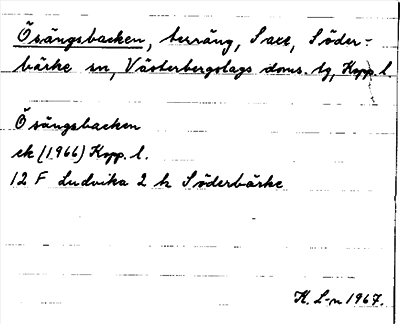 Ösängsbacken, terräng, Saxe, Söder-
bärke sn, Västerbergslags doms. tg, Kopp. l
Ösängsbacken
ek (1966) Kopp. l.
12 F Ludvika 2 h Söderbärke
K. L-n 1967.